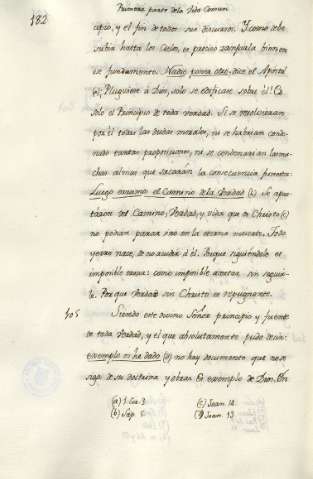 182
Puentes para de la Vida Comun
cipio, y el fin de todos sus discursos. Y como debe
subir hasta los Cielos, es preciso zanjarla bien en
su fundamento. Nadie ponga otro, dice el Apostol
(a). Pluguiere à Dios, solo se edificase sobre èl! Es
solo el Principio de toda verdad. Si se resolvieran
por èl todas las dudas morales, no se habrian conde-
nado tantas proposiciones, ni se condenarian las mu-
chas almas que sacaràn la consecuencia funesta:
Luego erramos el Camino de la Verdad (b). Si se apar-
taron del Camino, Verdad, y vida que es Christo (c)
no podian parar sino en la eterna muerte. Todo
yerro nace, de no acudir à èl. Porque siguiendole es
imposible errar: como imposible acertar sin seguir-
le. Porque Verdad sin Christo es repugnante.
105 Siendo este divino Señor principio y fuente
de toda Verdad, y el que absolutamente pudo decir:
exemplo os he dado (d) no hay documento que no se
siga de su doctrina y obras. Es exemplo de Dios. En
(a) 1. Cor. 3
(b) Sap. 5
(c) Joan. 14.
(d) Joan. 13